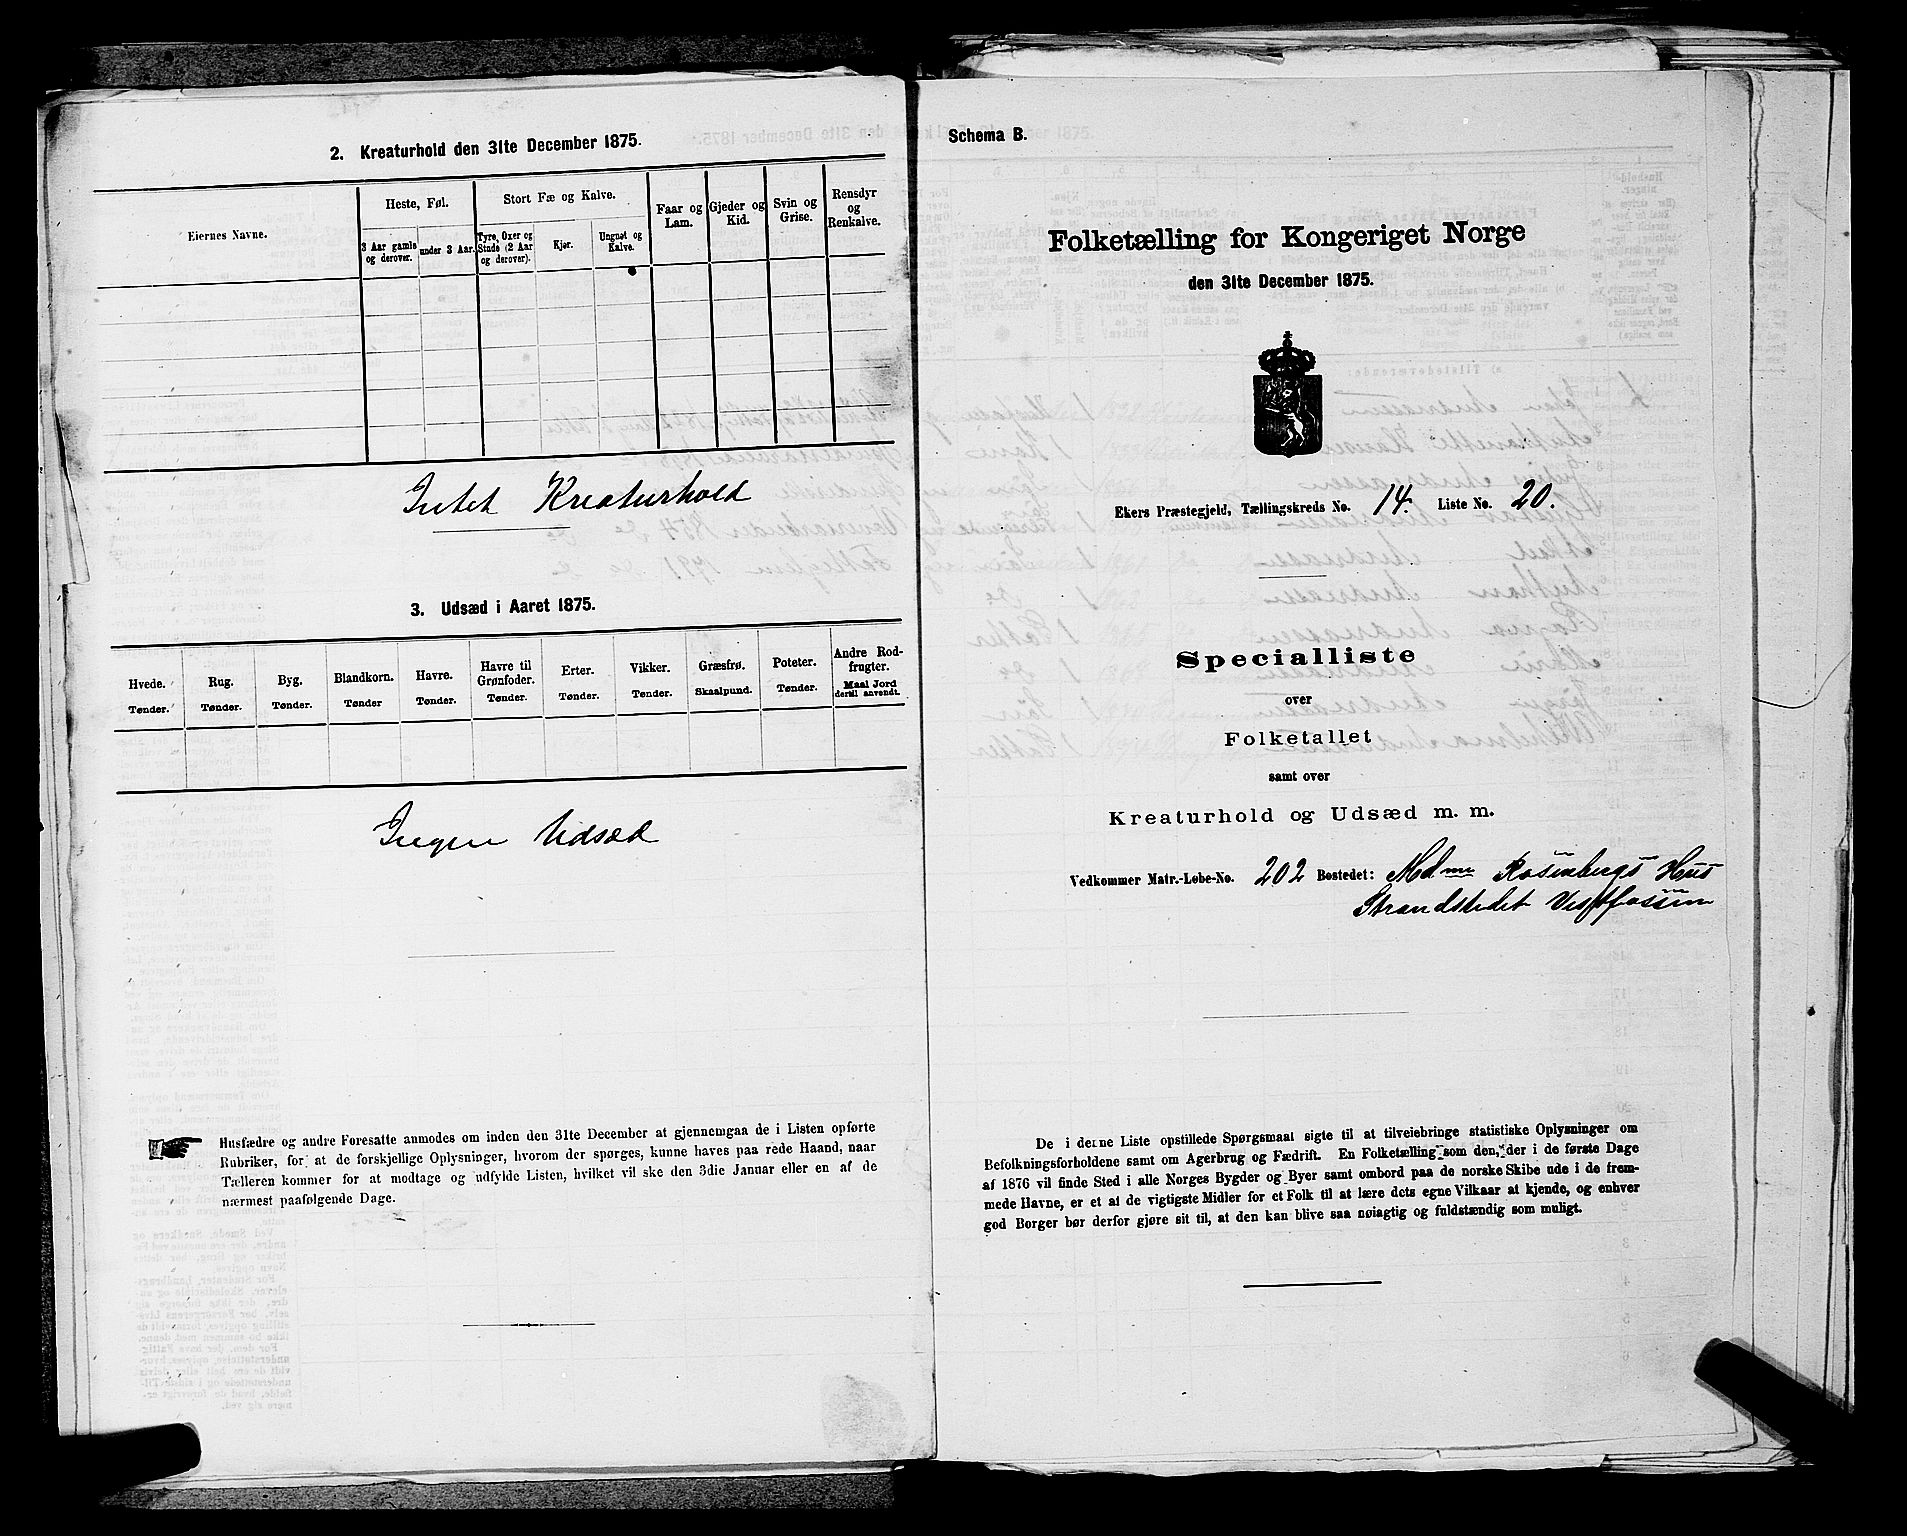 2. Kreaturhold den 31te December 1875.
Eiernes Navne.
Heste, Føl.
3 Aar gamle og derover.
under 3 Aar.
Stort Fæ og Kalve.
Tyre, Oxer og Stude (2 Aar og derover).
Kjør.
Ungnøt og Kalve.
Faar og Lam.
Gjeder og Kid.
Svin og Grise.
Rensdyr og Renkalve.
Intet Kreaturhold
3. Udsæd i Aaret 1875.
Hvede. Tønder.
Rug. Tønder.
Byg. Tønder.
Blandkorn. Tønder
Havre. Tønder.
Havre til Grønfoder. Tønder.
Erter. Tønder.
Vikker. Tønder.
Græsfrø. Skaalpund.
Poteter. Tønder.
Andre Rodfrugter. Maal Jord dertil anvendt.
Ingen Udsæd
Husfædre og andre Foresatte anmodes om inden den 31te December at gjennemgaa de i Listen opførte
Rubriker, for at de forskjellige Oplysninger, hvorom der spørges, kunne haves paa rede Haand, naar
Tælleren kommer for at modtage og udfylde Listen, hvilket vil ske den 3die Januar eller en af de
nærmest paafølgende Dage.
Schema B.
Folketælling for Kongeriget Norge
den 31te December 1875.
Ekers Præstegjeld, Tællingskreds No. 14. Liste No. 20.
Specialliste
over
Folketallet
samt over
Kreaturhold og Udsæd m. m.
Vedkommer Matr.-Løbe-No. 202 Bostedet: Mdme Rosenbergs Hus
Strandstedet Vestfossen
De i denne Liste opstillede Spørgsmaal sigte til at tilveiebringe statistiske Oplysninger om
Befolkningsforholdene samt om Agerbrug og Fædrift. En Folketælling som den, der i de første Dage
af 1876 vil finde Sted i alle Norges Bygder og Byer samt ombord paa de norske Skibe ude i de frem-
mede Havne, er et af de vigtigste Midler for et Folk til at lære dets egne Vilkaar at kjende, og enhver
god Borger bør derfor gjøre sit til, at den kan blive saa nøiagtig og fuldstændig som muligt.